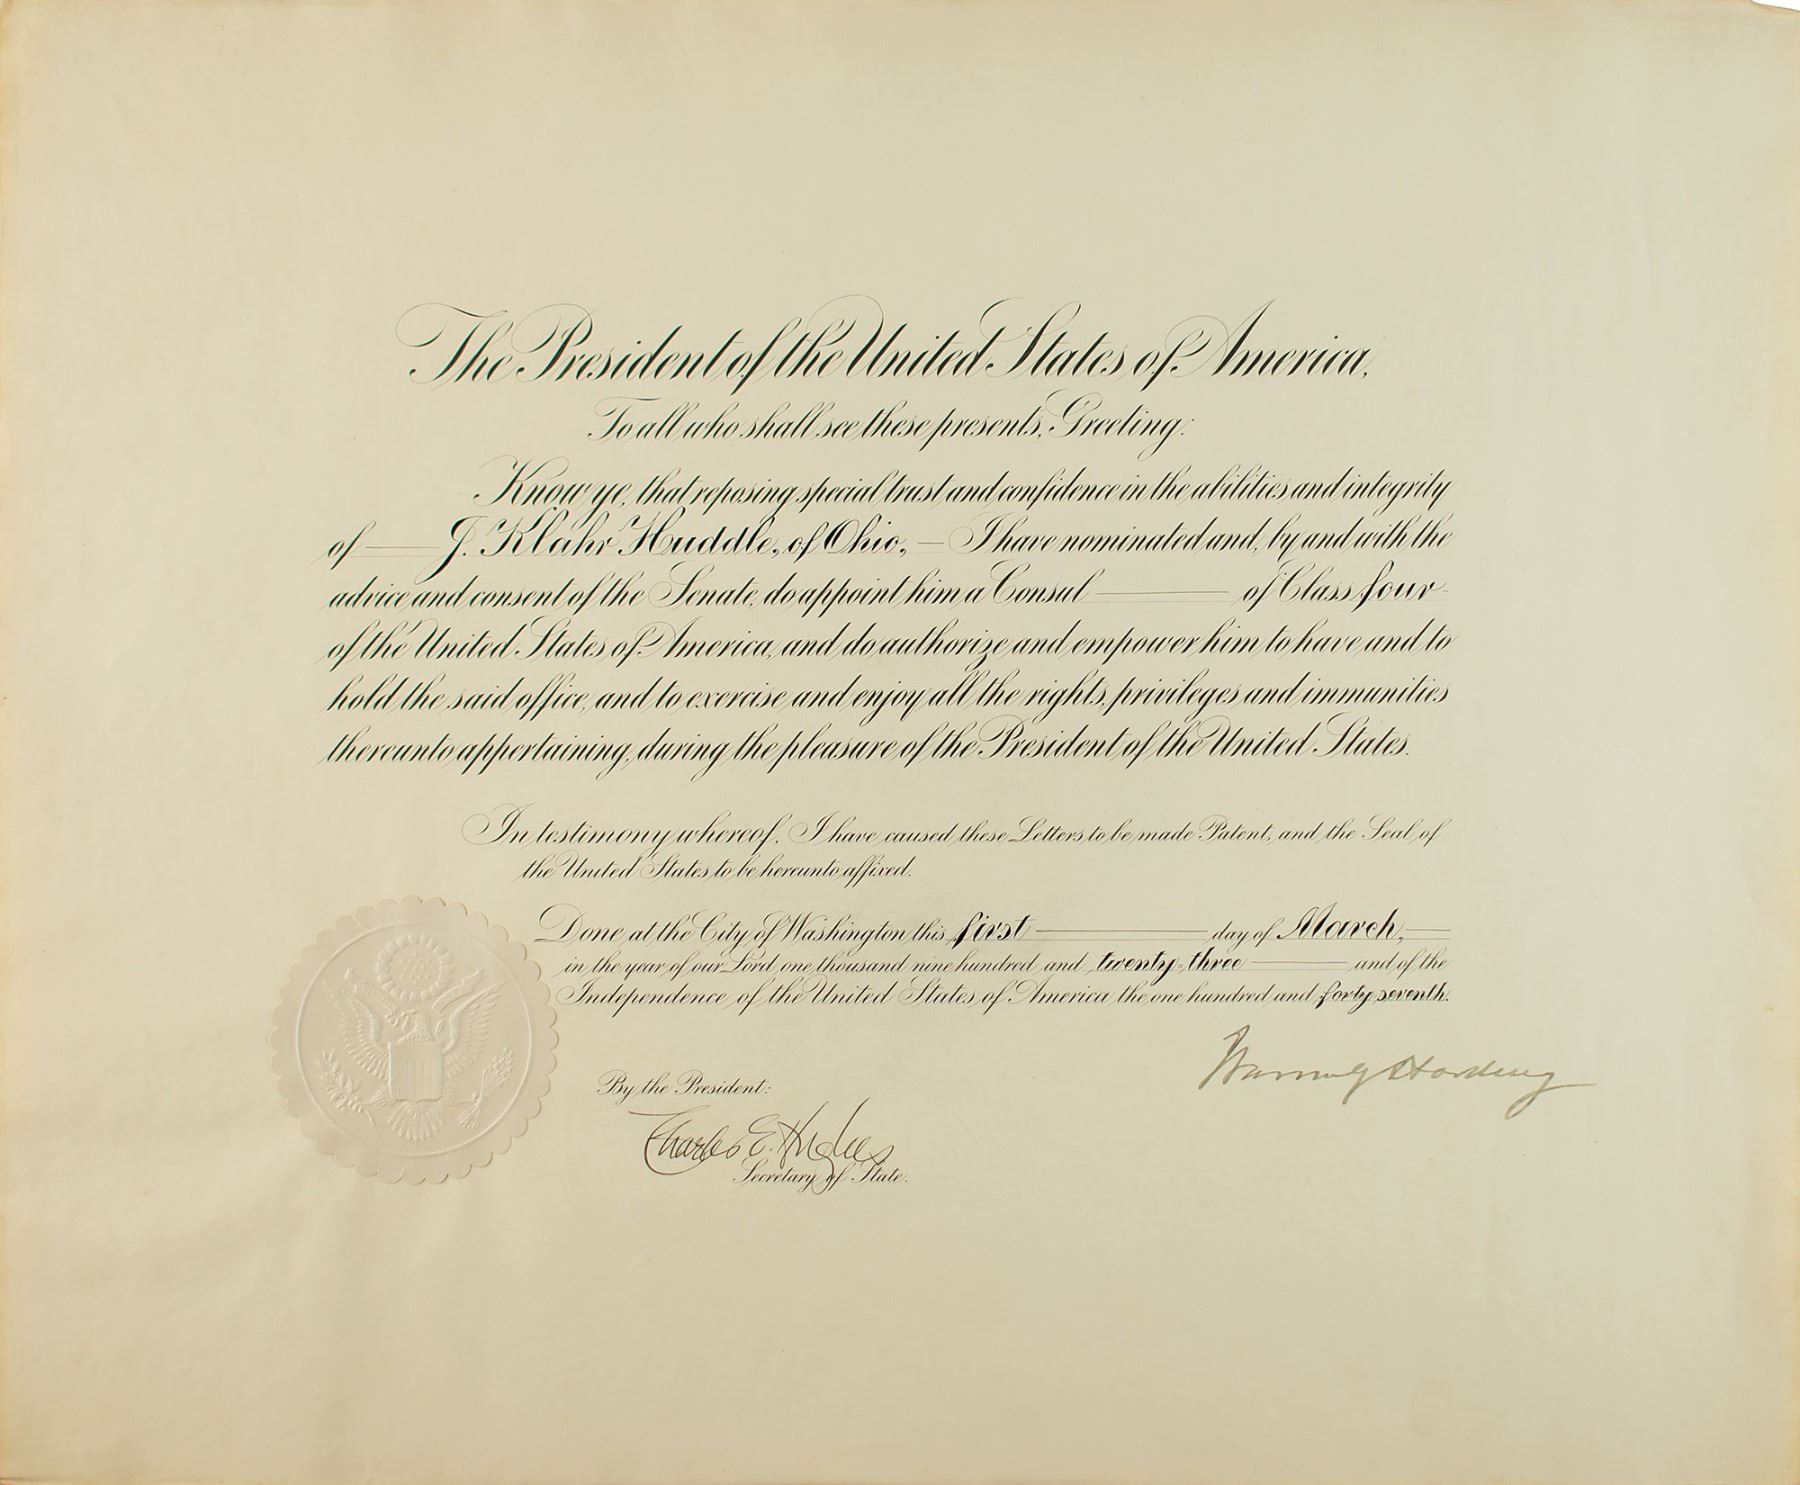 The President of the United States of America,
To all who shall see these presents, Greeting:
Know ye, that reposing special trust and confidence in the abilities and integrity
of — J. Klahr Huddle, of Ohio, — I have nominated and, by and with the
advice and consent of the Senate, do appoint him a Consul — of Class four
of the United States of America, and do authorize and empower him to have and to
hold the said office, and to exercise and enjoy all the rights, privileges and immunities
thereunto appertaining, during the pleasure of the President of the United States.
In testimony whereof, I have caused these Letters to be made Patent, and the Seal of
the United States to be hereunto affixed.
Done at the City of Washington this first — day of March, —
in the year of our Lord one thousand nine hundred and twenty-three — and of the
Independence of the United States of America the one hundred and forty seventh.
Warren G Harding
By the President:
Charles E. Hughes
Secretary of State.